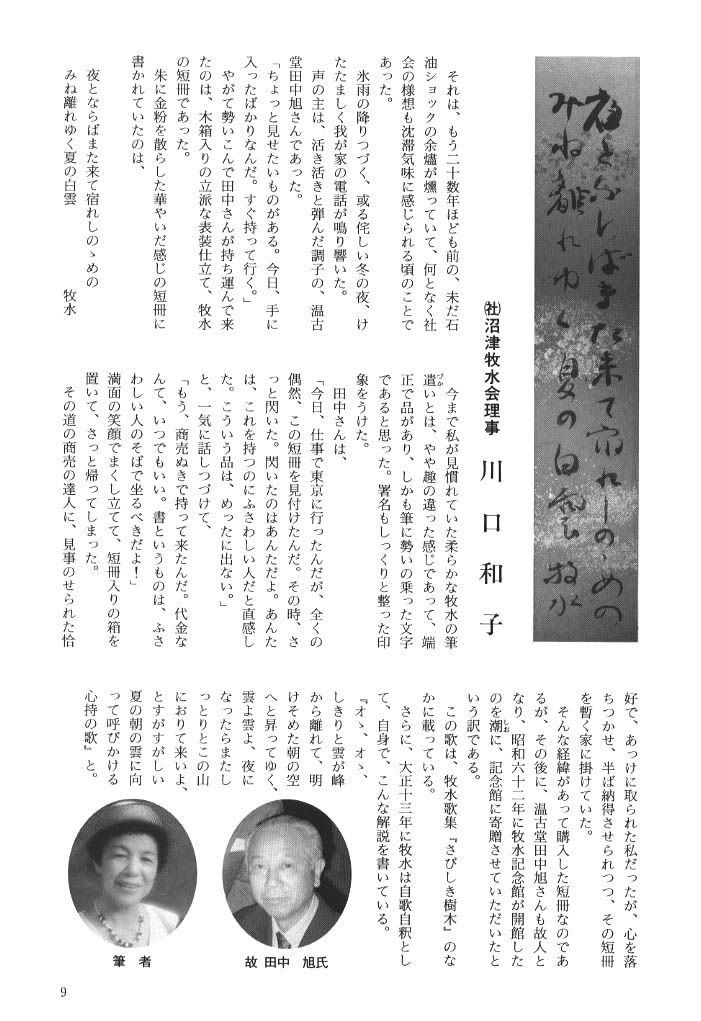 夜とならばまた来て宿れしのゝめの
みね離れゆく夏の白雲 牧水
㈳沼津牧水会理事 川口和子
それは、もう二十数年ほども前の、未だ石
油ショックの余燼が燻っていて、何となく社
会の様想も沈滞気味に感じられる頃のことで
あった。
氷雨の降りつづく、或る侘しい冬の夜、け
たたましく我が家の電話が鳴り響いた。
声の主は、活き活きと弾んだ調子の、温古
堂田中旭さんであった。
「ちょっと見せたいものがある。今日、手に
入ったばかりなんだ。すぐ持って行く。」
やがて勢いこんで田中さんが持ち運んで来
たのは、木箱入りの立派な表装仕立て、牧水
の短冊であった。
朱に金粉を散らした華やいだ感じの短冊に
書かれていたのは、
夜とならばまた来て宿れしのゝめの
みね離れゆく夏の白雲 牧水
今まで私が見慣れていた柔らかな牧水の筆
遣いとは、やや趣の違った感じであって、端
正で品があり、しかも筆に勢いの乗った文字
であると思った。署名もしっくりと整った印
象をうけた。
田中さんは、
「今日、仕事で東京に行ったんだが、全くの
偶然、この短冊を見付けたんだ。その時、さ
っと閃いた。閃いたのはあんただよ。あんた
は、これを持つのにふさわしい人だと直感し
た。こういう品は、めったに出ない。」
と、一気に話しつづけて、
「もう、商売ぬきで持って来たんだ。代金な
んて、いつでもいい。書というものは、ふさ
わしい人のそばで坐るべきだよ！」
満面の笑顔でまくし立てて、短冊入りの箱を
置いて、さっと帰ってしまった。
その道の商売の達人に、見事のせられた恰
好で、あっけに取られた私だったが、心を落
ちつかせ、半ば納得させられつつ、その短冊
を暫く家に掛けていた。
そんな経緯があって購入した短冊なのであ
るが、その後に、温古堂田中旭さんも故人と
なり、昭和六十二年に牧水記念館が開館した
のを潮に、記念館に寄贈させていただいたと
いう訳である。
この歌は、牧水歌集『さびしき樹木』のな
かに載っている。
さらに、大正十三年に牧水は自歌自釈とし
て、自身で、こんな解説を書いている。
『オゝ、オゝ、
しきりと雲が峰
から離れて、明
けそめた朝の空
へと昇ってゆく、
雲よ雲よ、夜に
なったらまたし
っとりとこの山
におりて来いよ、
とすがすがしい
夏の朝の雲に向
って呼びかける
心持の歌』と。
故 田中 旭氏
筆 者
9